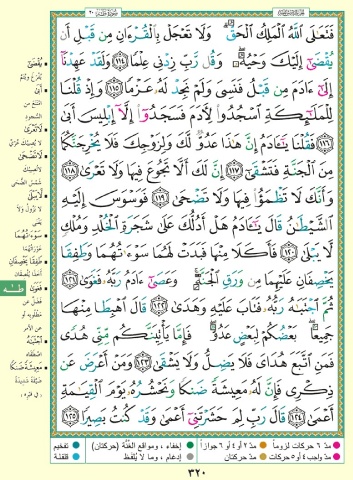 فَتَعَٰلَى ٱللَّهُ ٱلْمَلِكُ ٱلْحَقُّ ۗ وَلَا تَعْجَلْ بِٱلْقُرْءَانِ مِن قَبْلِ أَن
يُقْضَىٰٓ إِلَيْكَ وَحْيُهُۥ ۖ وَقُل رَّبِّ زِدْنِى عِلْمًا ﴿١١٤﴾ وَلَقَدْ عَهِدْنَآ
إِلَىٰٓ ءَادَمَ مِن قَبْلُ فَنَسِىَ وَلَمْ نَجِدْ لَهُۥ عَزْمًا ﴿١١٥﴾ وَإِذْ قُلْنَا
لِلْمَلَٰٓئِكَةِ ٱسْجُدُوا۟ لِءَادَمَ فَسَجَدُوٓا۟ إِلَّآ إِبْلِيسَ أَبَىٰ
﴿١١٦﴾ فَقُلْنَا يَٰٓـَٔادَمُ إِنَّ هَٰذَا عَدُوٌّ لَّكَ وَلِزَوْجِكَ فَلَا يُخْرِجَنَّكُمَا
مِنَ ٱلْجَنَّةِ فَتَشْقَىٰٓ ﴿١١٧﴾ إِنَّ لَكَ أَلَّا تَجُوعَ فِيهَا وَلَا تَعْرَىٰ ﴿١١٨﴾
وَأَنَّكَ لَا تَظْمَؤُا۟ فِيهَا وَلَا تَضْحَىٰ ﴿١١٩﴾ فَوَسْوَسَ إِلَيْهِ
ٱلشَّيْطَٰنُ قَالَ يَٰٓـَٔادَمُ هَلْ أَدُلُّكَ عَلَىٰ شَجَرَةِ ٱلْخُلْدِ وَمُلْكٍ
لَّا يَبْلَىٰ ﴿١٢٠﴾ فَأَكَلَا مِنْهَا فَبَدَتْ لَهُمَا سَوْءَٰتُهُمَا وَطَفِقَا
يَخْصِفَانِ عَلَيْهِمَا مِن وَرَقِ ٱلْجَنَّةِ ۚ وَعَصَىٰٓ ءَادَمُ رَبَّهُۥ فَغَوَىٰ ﴿١٢١﴾
ثُمَّ ٱجْتَبَٰهُ رَبُّهُۥ فَتَابَ عَلَيْهِ وَهَدَىٰ ﴿١٢٢﴾ قَالَ ٱهْبِطَا مِنْهَا
جَمِيعًۢا ۖ بَعْضُكُمْ لِبَعْضٍ عَدُوٌّ ۖ فَإِمَّا يَأْتِيَنَّكُم مِّنِّى هُدًى
فَمَنِ ٱتَّبَعَ هُدَاىَ فَلَا يَضِلُّ وَلَا يَشْقَىٰ ﴿١٢٣﴾ وَمَنْ أَعْرَضَ عَن
ذِكْرِى فَإِنَّ لَهُۥ مَعِيشَةً ضَنكًا وَنَحْشُرُهُۥ يَوْمَ ٱلْقِيَٰمَةِ
أَعْمَىٰ ﴿١٢٤﴾ قَالَ رَبِّ لِمَ حَشَرْتَنِىٓ أَعْمَىٰ وَقَدْ كُنتُ بَصِيرًا ﴿١٢٥﴾
يُقْضَىٰ
أَبَىٰ
امتنع من
السجود
لَا تَعْرَىٰ
لَا تَضْحَىٰ
لَا يَبْلَىٰ
سَوْءَٰتُهُمَا
طَفِقَا يَخْصِفَانِ
فَغَوَىٰ
طـٰه
عن الأمر
ٱجْتَبَٰهُ
اصطفاه
مَعِيشَةً ضَنكًا
ضيقة شديدة
مدّ ٦ حركات لزوماً
مدّ ٢ أو ٤ أو ٦ جوازاً
إخفاء، ومواقع الغُنَّة (حركتان)
تفخيم
مدّ واجب ٤ أو ٥ حركات
مدّ حركتان
إدغام، وما لا يُلفظ
قلقلة
٣٢٠